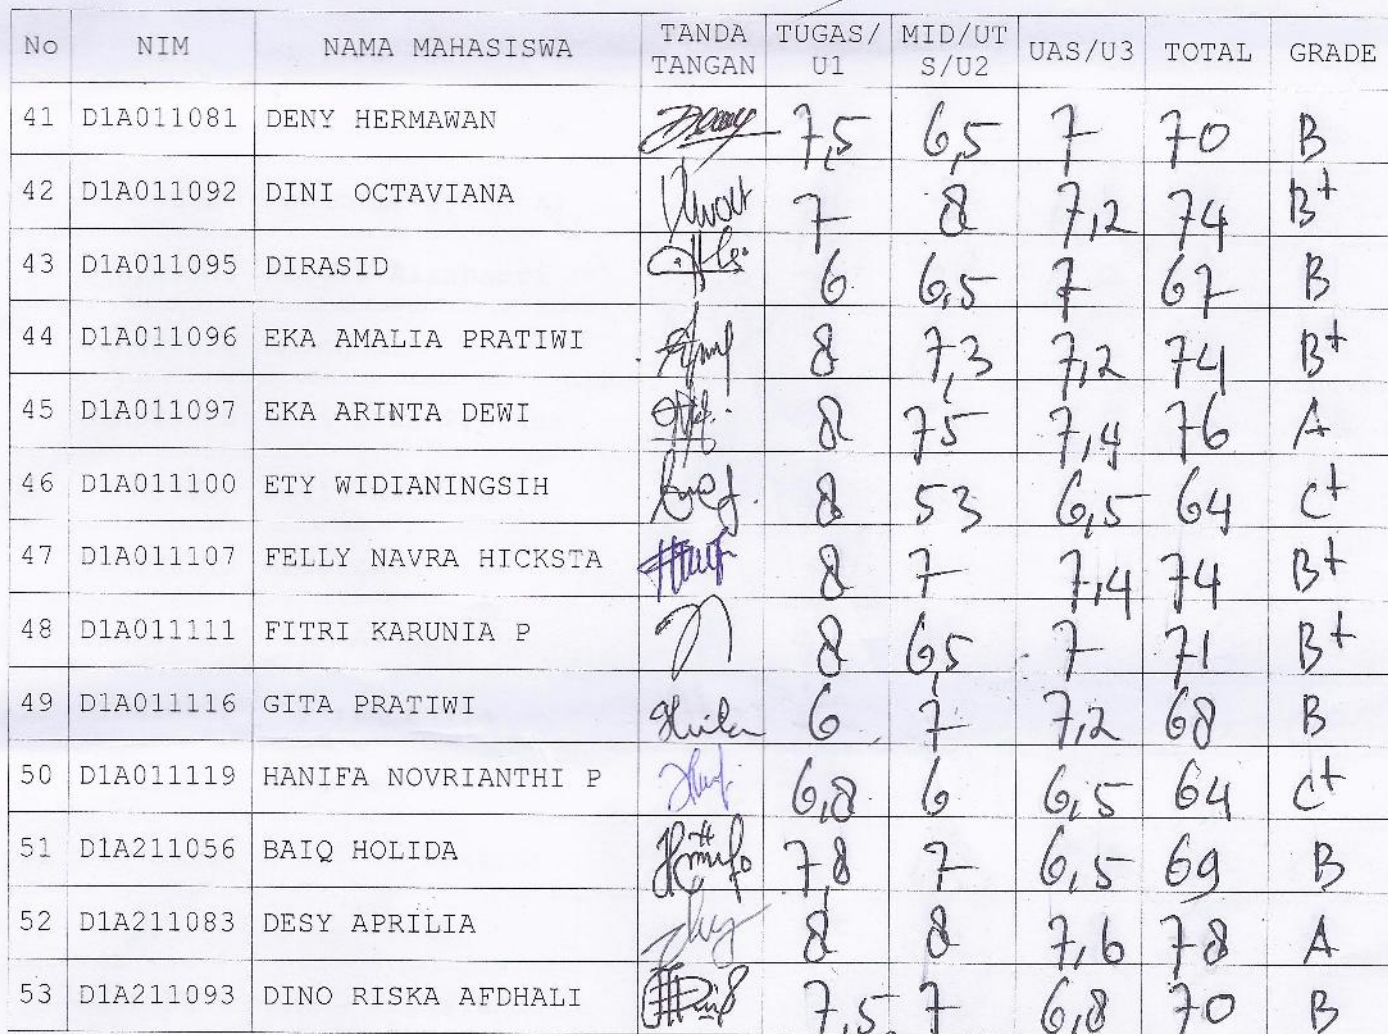 No NIM NAMA MAHASISWA TANDA TANGAN TUGAS/U1 MID/UTS/U2 UAS/U3 TOTAL GRADE
41 D1A011081 DENY HERMAWAN 7,5 6,5 7 70 B
42 D1A011092 DINI OCTAVIANA 7 8 7,2 74 B+
43 D1A011095 DIRASID 6 6,5 7 67 B
44 D1A011096 EKA AMALIA PRATIWI 8 7,3 7,2 74 B+
45 D1A011097 EKA ARINTA DEWI 8 75 7,4 76 A
46 D1A011100 ETY WIDIANINGSIH 8 53 6,5 64 C+
47 D1A011107 FELLY NAVRA HICKSTA 8 7 7,4 74 B+
48 D1A011111 FITRI KARUNIA P 8 6,5 7 71 B+
49 D1A011116 GITA PRATIWI 6 7 7,2 68 B
50 D1A011119 HANIFA NOVRIANTHI P 6,8 6 6,5 64 C+
51 D1A211056 BAIQ HOLIDA 7,8 7 6,5 69 B
52 D1A211083 DESY APRILIA 8 8 7,6 78 A
53 D1A211093 DINO RISKA AFDHALI 7,5 7 6,8 70 B